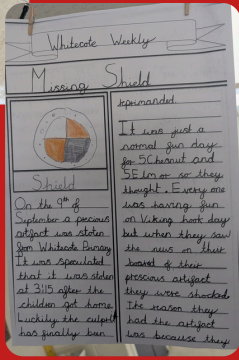 Whitecote Weekly
Missing Shield
Shield
On the 9th of
September a precious
artifact was stolen
from Whitecote Primary
It was speculated
that it was stolen
at 3:15 after the
children got home.
Luckily the culprit
has finally been
reprimanded.
It was just a
normal fun day
for 5Chesnut and
5Elm or so they
thought. Everyone
was having fun
on Viking hook day
but when they saw
the news on their
board of their
prescious artifact
they were shocked.
The reason they
had the artifact
was because they